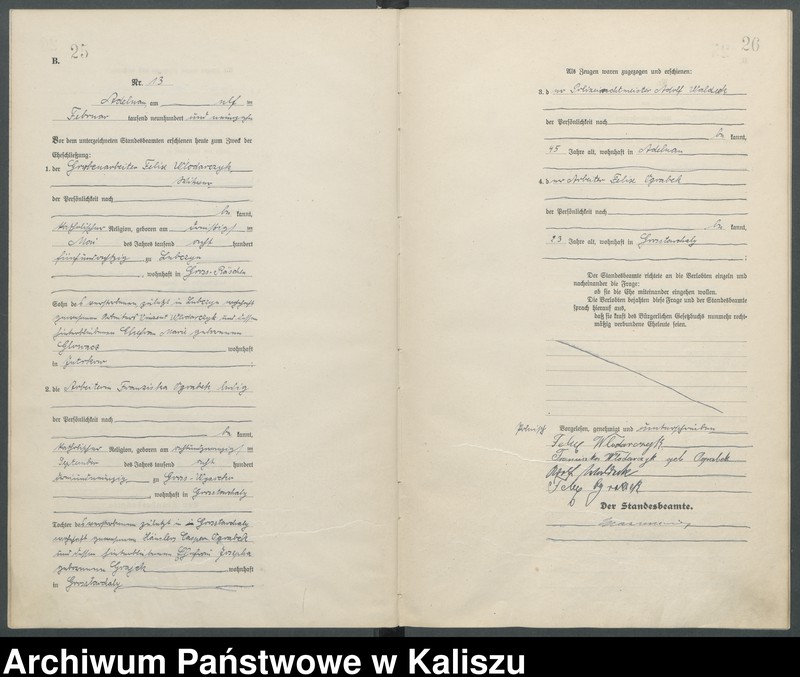 25
B.
Nr. 13
Adelnau am elf ten
Februar tausend neunhundert und neunzehn
Vor dem unterzeichneten Standesbeamten erschienen heute zum Zweck der
Eheschließung:
1. der Grubenarbeiter Felix Wlodarczyk
Witwer
der Persönlichkeit nach
be kannt,
katholischer Religion, geboren am
Mai des Jahres tausend acht hundert
fünfundachtzig zu
, wohnhaft in Gross-Räschen
Sohn des verstorbenen zuletzt in wohnhaft
gewesenen Arbeiters Vincent Wlodarczyk und dessen
hinterbliebenen Ehefrau Marie geborenen
wohnhaft
in
2. die Arbeiterin Franziska Ograbek, ledig
der Persönlichkeit nach
be kannt,
katholischer Religion, geboren am ten
September des Jahres tausend acht hundert
zu Gross-Wysocko
, wohnhaft in Grosstarchaly
Tochter des verstorbenen zuletzt in Grosstarchaly
wohnhaft gewesenen Häusler Ograbek
und dessen hinterbliebenen Ehefrau Josepha
geborenen wohnhaft
in Grosstarchaly
26
Als Zeugen waren zugezogen und erschienen:
3. der Polizeiwachtmeister Adolf
der Persönlichkeit nach
be kannt,
45 Jahre alt, wohnhaft in Adelnau
4. der Arbeiter Felix Ograbek
der Persönlichkeit nach
be kannt,
23 Jahre alt, wohnhaft in Grosstarchaly
Der Standesbeamte richtete an die Verlobten einzeln und
nacheinander die Frage:
ob sie die Ehe miteinander eingehen wollen.
Die Verlobten bejahten diese Frage und der Standesbeamte
sprach hierauf aus,
daß sie kraft des Bürgerlichen Gesetzbuchs nunmehr recht-
mäßig verbundene Eheleute seien.
Vorgelesen, genehmigt und unterschrieben
Felix Wlodarczyk
Franziska Wlodarczyk geb Ograbek
Adolf
Felix Ograbek
Der Standesbeamte.
Archiwum Państwowe w Kaliszu